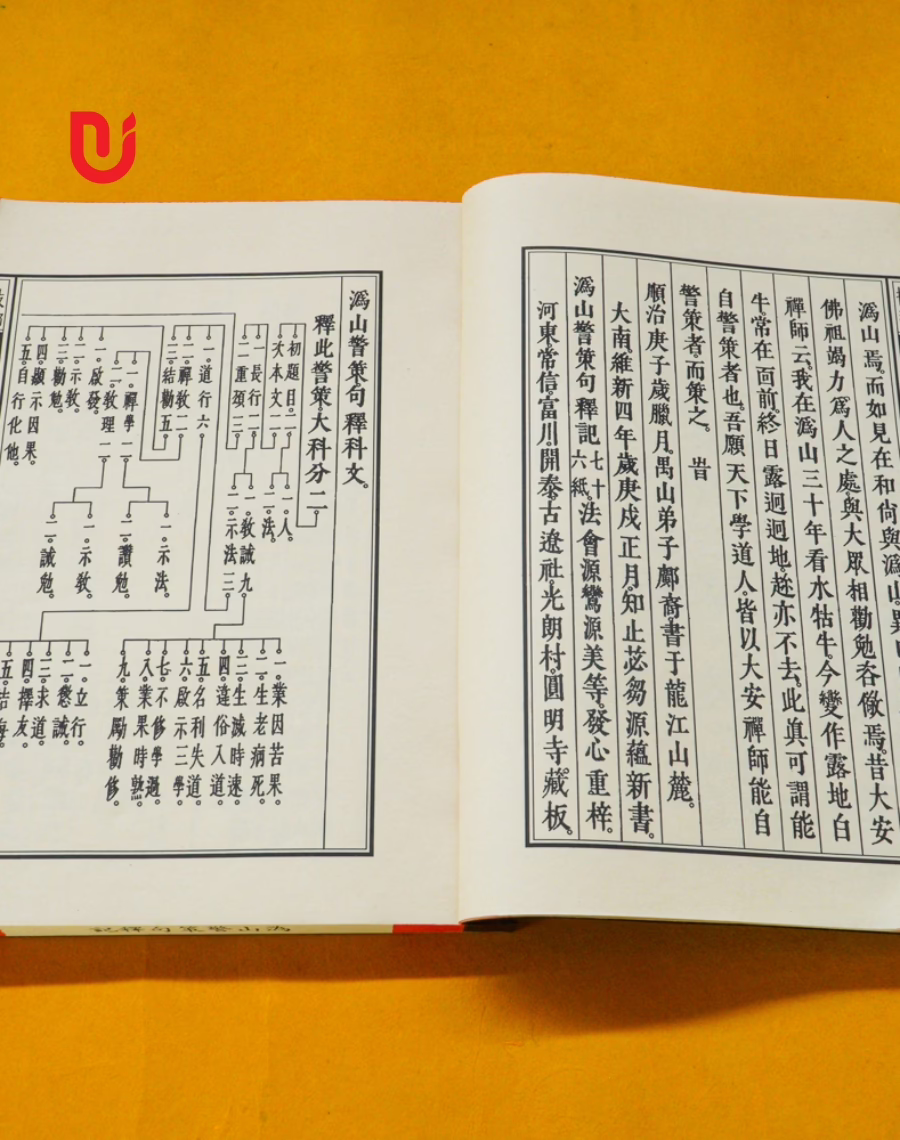 潙山焉。而如見在和尚與潙山。異
佛祖竭力爲人之處。與大眾相勸勉。吝儆焉。昔大安
禪師云。我在潙山三十年看水牯牛。今變作露地白
牛。常在面前。終日露迥迥地。趂亦不去。此眞可謂能
自警策者也。吾願天下學道人。皆以大安禪師能自
警策者。而策之。旹
順治庚子歲臘月。禺山弟子鄺裔。書于龍江山麓。
大南。維新四年歲庚戌正月。知止苾芻源蘊新書。
潙山警策句釋記七十六紙。法會源鸞源美等。發心重梓。
河東常信。富川。開泰。古遼社。光朗村。圓明寺藏板。
潙山警策句釋科文。
釋此警策。大科分二
初題目二
次本文二
一人。
二法。
一長行二
二重頌三
一教誡九
二示法三
一業因苦果。
二生老病死。
三生滅時速。
四違俗入道。
五名利失道。
六啟示三學。
七不修學過。
八業果時熟。
九策勵勸修。
一道行六
二禪教二
三結勸五
一立行。
二懲誡。
三求道。
四擇友。
五結
一禪學二
二教理二
一示法。
二讚勉。
一示教。
二誡勉。
一啟發。
二示教。
三勸勉。
四顯示因果。
五自行化他。
潙山警策句釋記